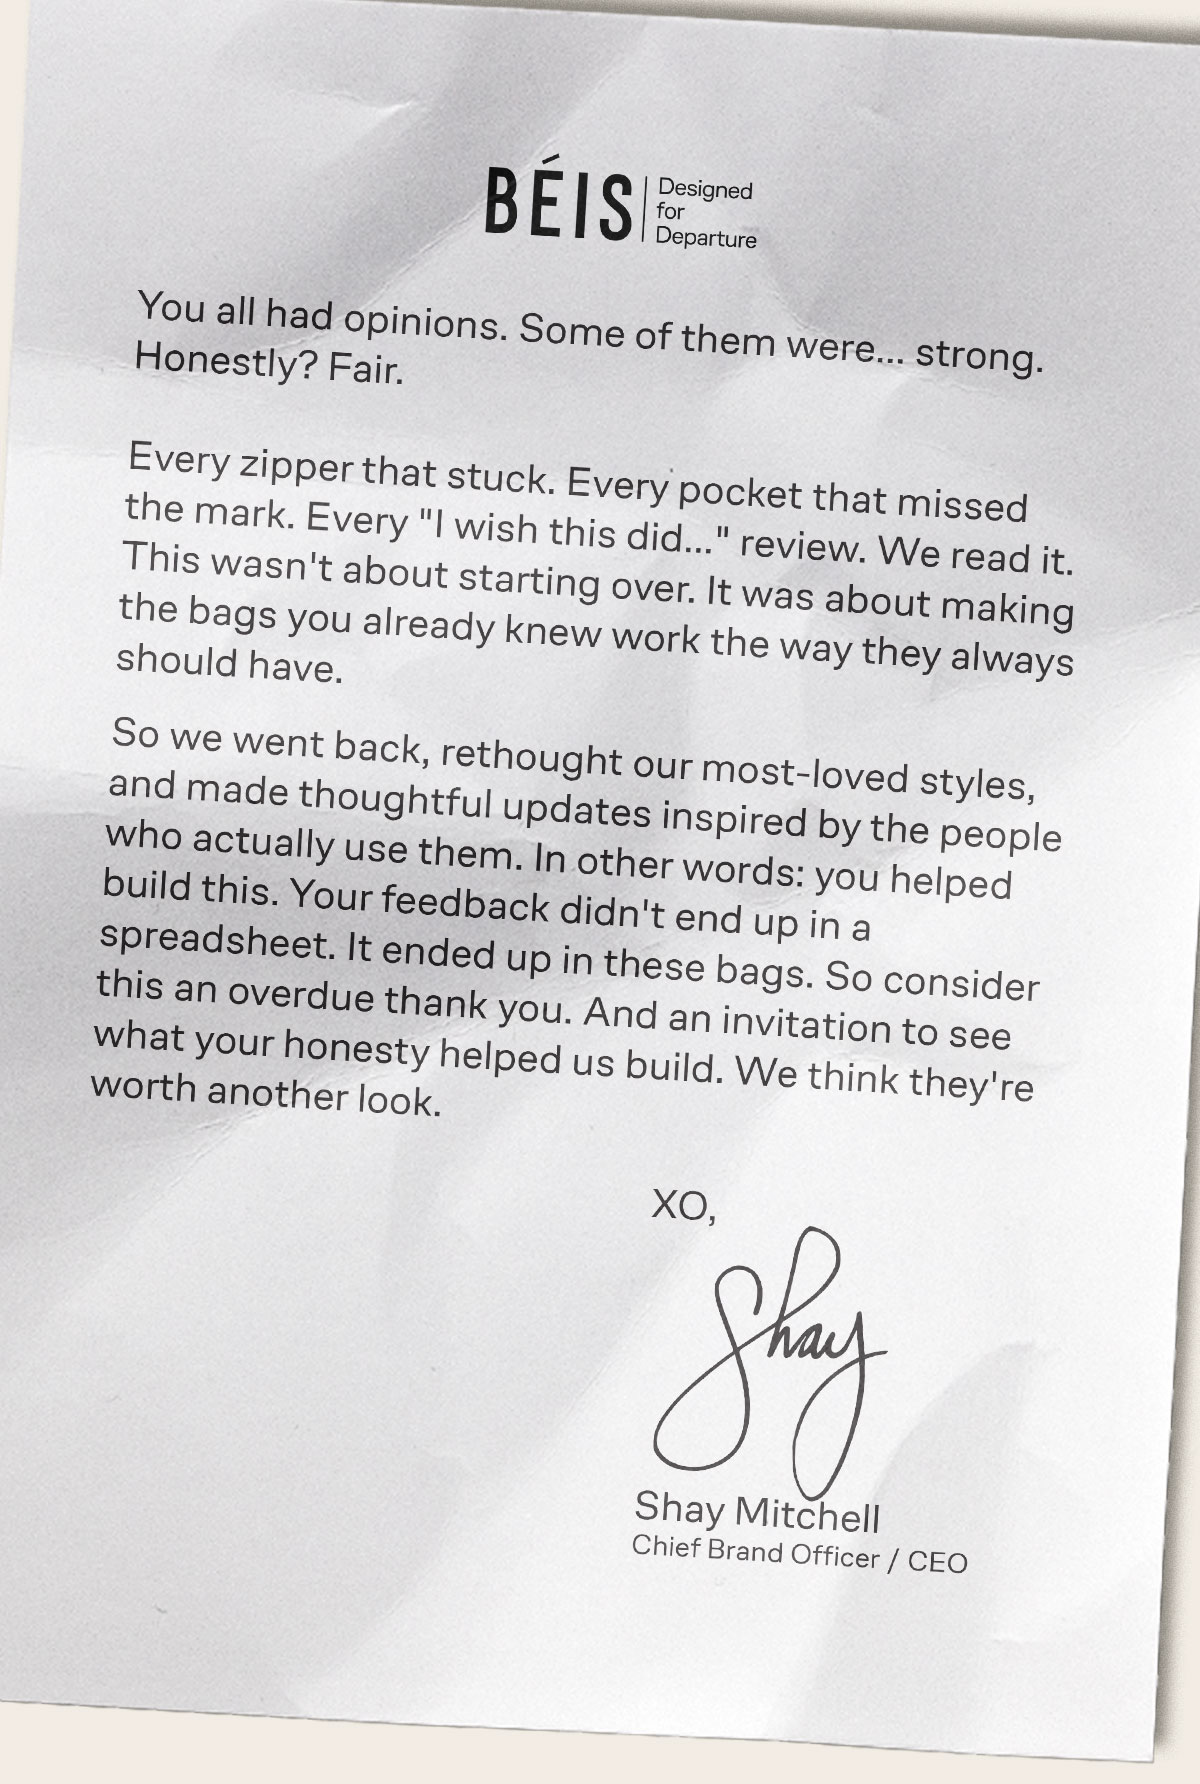 BÉIS
Designed
for
Departure
You all had opinions. Some of them were... strong.
Honestly? Fair.
Every zipper that stuck. Every pocket that missed
the mark. Every "I wish this did..." review. We read it.
This wasn't about starting over. It was about making
the bags you already knew work the way they always
should have.
So we went back, rethought our most-loved styles,
and made thoughtful updates inspired by the people
who actually use them. In other words: you helped
build this. Your feedback didn't end up in a
spreadsheet. It ended up in these bags. So consider
this an overdue thank you. And an invitation to see
what your honesty helped us build. We think they're
worth another look.
XO,
Shay
Shay Mitchell
Chief Brand Officer / CEO